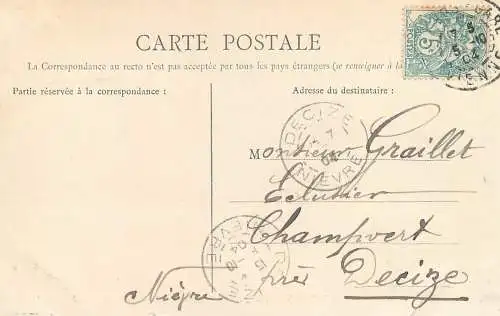 CARTE POSTALE
La Correspondance au recto n'est pas acceptée par tous les pays étrangers (se renseigner à la
Partie réservée à la correspondance :
Adresse du destinataire :
DECIZE
7
04
NIEVRE
Monsieur Graillet
Eclusier
Champvert
près Decize
Nièvre